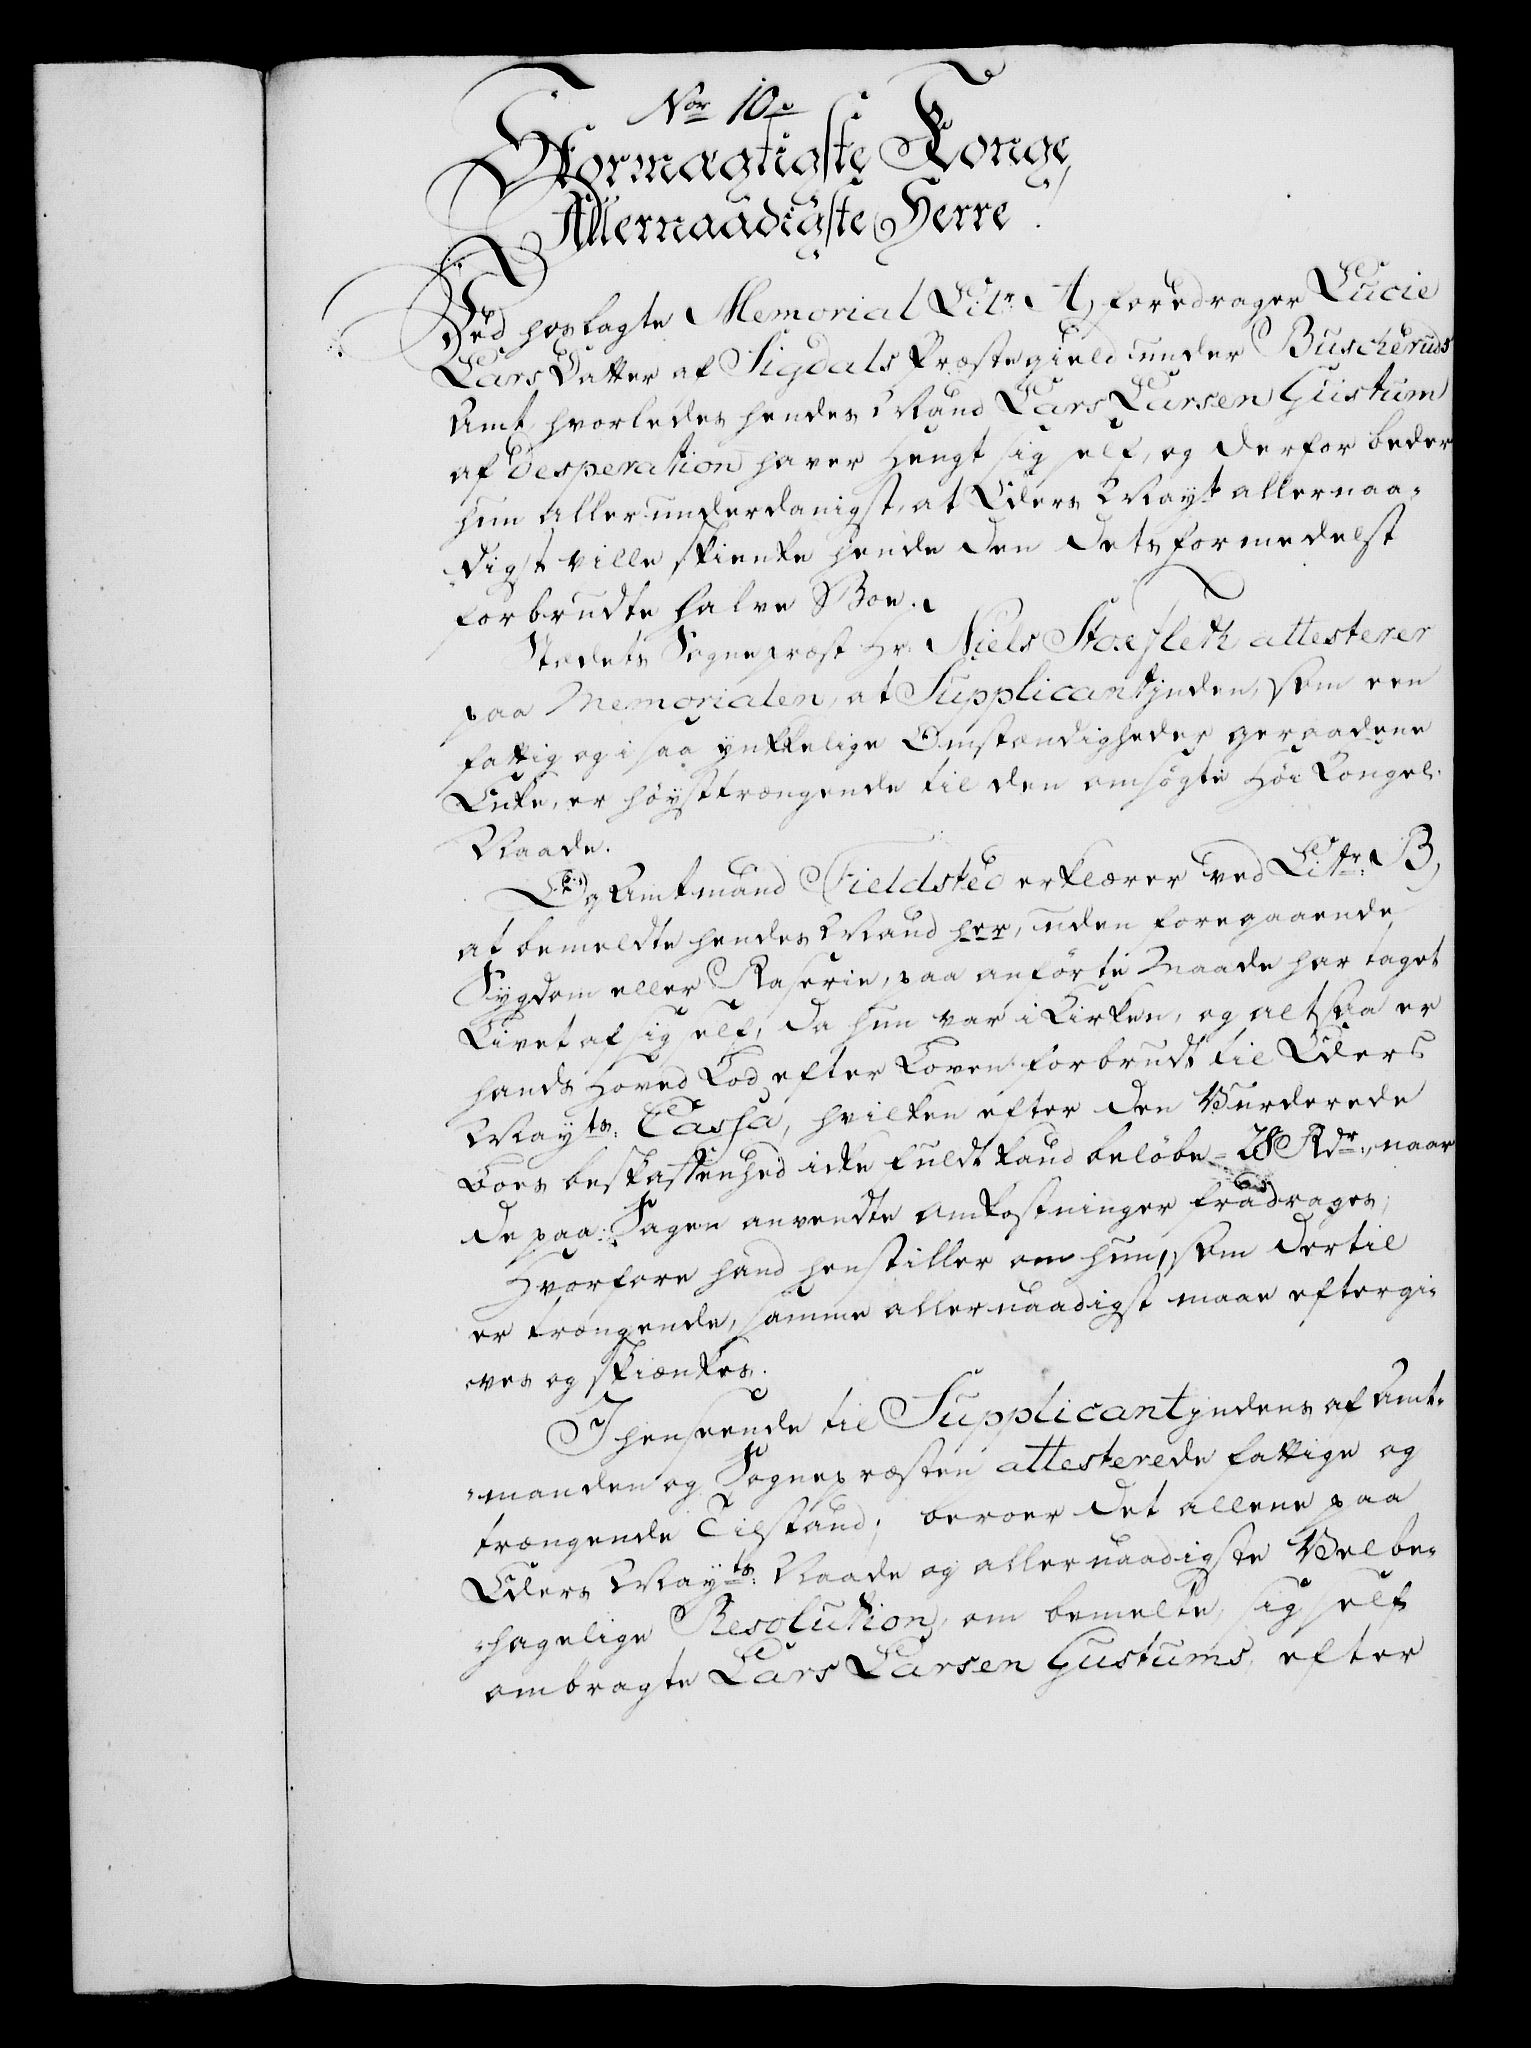 Nor 10.
Stormægtigste Konge,
Allernaadigste Herre.
Ved hoslagte Memorial Litr. A, foredrager Lucie
Lars Datter af Sigdals Præstegield under Buscheruds
Amt, hvorledes hendes Mand Lars Larsen Gustum
af desperation haver hengt sig self, og derfor beder
hun allerunderdanigst, at Eders Mayt allernaa-
digst ville skienke hende den Detsformedelst
forbrudte halve Boe.
Stedets Sognepræst Hr. Niels Stockfleth attesterer
paa Memorialen, at Supplicantinden, som een
fattig og i saa ynkkelige Omstændigheder geraadene
Enke, er høysttrængende til den ansøgte Høi Kongel.
Naade.
Og Amtmand Fieldsted erklærer ved Litr. B,
at bemeldte hendes Mand her, uden foregaaende
Sygdom eller Raserie, paa anførte Maade har taget
Livet af sig self, da hun var i Kirken, og altsaa er
hands Hoved Lod efter Loven forbrudt til Eders
Mayts: Cassa, hvilken efter den Vurderede
Boes beskaffenhed icke fuldt kand beløbe 28 Rdr., naar
de paa Sagen anvendte omkostninger fradrages,
Hvorfore hand henstiller om hun, som dertil
er trængende, samme allernaadigst maae eftergi-
ves og skiænkes.
I henseende til Supplicantindens af Amt-
manden og Sognepræsten attesterede fattige og
trængende Tilstand; beroer det allene paa
Eders Mayts: Naade og allernaadigste Velbe-
hagelige Resolution, om bemelte, sig self
ombragte Lars Larsen Gustums, efter